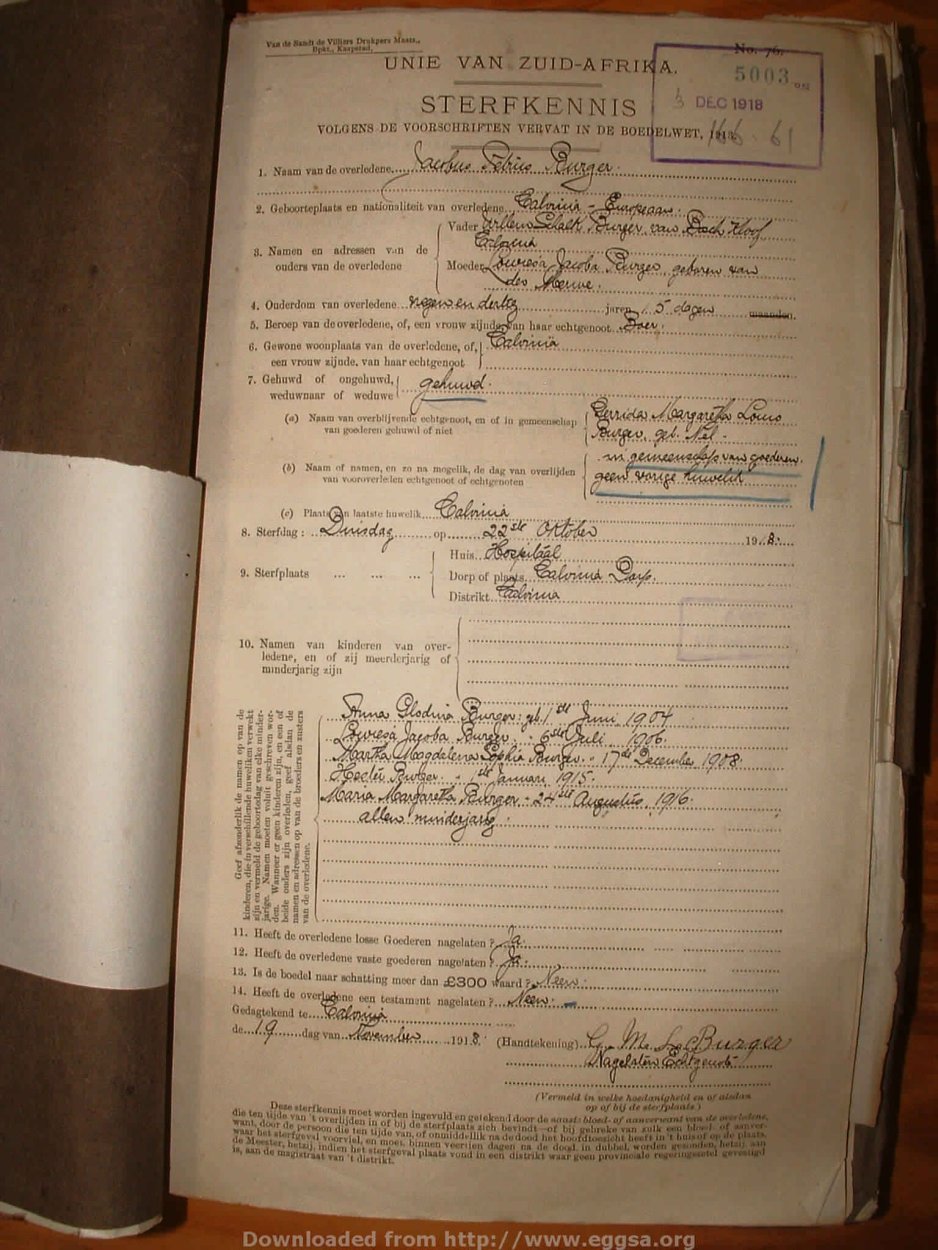 Van de Sandt de Villiers Drukpers Maats.,
Bpkt., Kaapstad.
No. 76.
UNIE VAN ZUID-AFRIKA.
5003
3 DEC 1918
STERFKENNIS
VOLGENS DE VOORSCHRIFTEN VERVAT IN DE BOEDELWET, 1913.
166 · 61
1. Naam van de overledene Jacobus Petrus Burger.
2. Geboorteplaats en nationaliteit van overledene Calvinia - Europeaan.
3. Namen en adressen van de ouders van de overledene
Vader Willem Schalk Burger van Bosch Kloof
Calvinia
Moeder Louwresa Jacoba Burger, geboren van
der Merwe.
4. Ouderdom van overledene negen en dertig jaren, 5 dagen maanden.
5. Beroep van de overledene, of, een vrouw zijnde, van haar echtgenoot Boer.
6. Gewone woonplaats van de overledene, of, Calvinia
een vrouw zijnde, van haar echtgenoot
7. Gehuwd of ongehuwd, gehuwd.
weduwnaar of weduwe
(a) Naam van overblijvende echtgenoot, en of in gemeenschap
van goederen gehuwd of niet
Gerrida Margaretha Louw
Burger, geb. Nel.
in gemeenschap van goederen.
(b) Naam of namen, en zo na mogelik, de dag van overlijden
van vooroverleden echtgenoot of echtgenoten
geen vorige huwelik
(c) Plaats van laatste huwelik Calvinia
8. Sterfdag: Dinsdag op 22ste Oktober 1918.
9. Sterfplaats
Huis Hospitaal
Dorp of plaats Calvinia Dorp.
Distrikt Calvinia
10. Namen van kinderen van over-
ledene, en of zij meerderjarig of
minderjarig zijn
Geef afzonderlik de namen op van de
kinderen, die in verschillende huweliken verwekt
zijn en vermeld de geboortedag van elke minder-
jarige. Namen moeten voluit geschreven wor-
den. Wanneer er geen kinderen zijn, en een of
beide ouders zijn overleden, geef alsdan de
namen en adressen op van de broeders en zusters
van de overledene.
Anna Glodina Burger: geb. 1ste Juni 1904
Louwresa Jacoba Burger . " 6de Juli 1906.
Martha Magdalena Sophia Burger. " 17de December 1908.
Hester Burger . " 1ste Januari 1915.
Maria Margaretha Burger - 24ste Augustus, 1916.
allen minderjarig.
11. Heeft de overledene losse Goederen nagelaten? Ja.
12. Heeft de overledene vaste goederen nagelaten? Ja.
13. Is de boedel naar schatting meer dan £300 waard? Neen.
14. Heeft de overledene een testament nagelaten? Neen.
Gedagtekend te Calvinia
de 19 dag van November 1918. (Handtekening) G. Ma. L. Burger
Nagelaten Echtgenoot
(Vermeld in welke hoedanigheid en of alsdan
op of bij de sterfplaats)
Deze sterfkennis moet worden ingevuld en getekend door de naaste bloed- of aanverwant van de overledene,
die ten tijde van 't overlijden in of bij de sterfplaats zich bevindt—of bij gebreke van zulk een bloed- of aanver-
want, door de persoon die ten tijde van, of onmiddellik na de dood het hoofdtoezicht heeft in 't huis of op de plaats,
waar het sterfgeval voorviel, en moet, binnen veertien dagen na de dood, in dubbel, worden gezonden, hetzij aan
de Meester, hetzij, indien het sterfgeval plaats vond in een distrikt waar geen provinciale regeringszetel gevestigd
is, aan de magistraat van 't distrikt.
Downloaded from http://www.eggsa.org